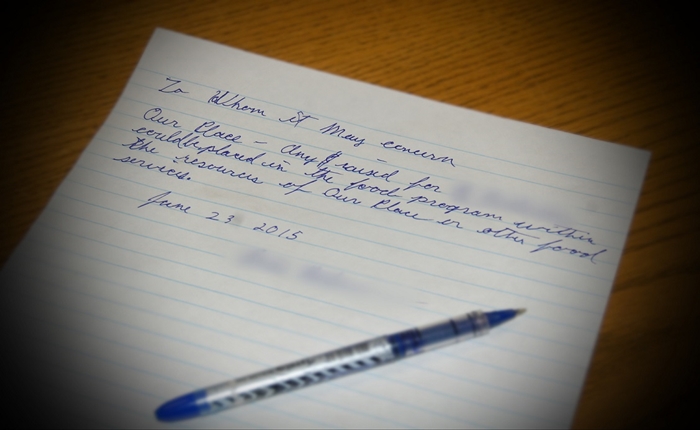 To Whom it May concern
Our Place - Any $ raised for
could be placed in the food program within
the resources of Our Place or other food
services.
June 23 2015